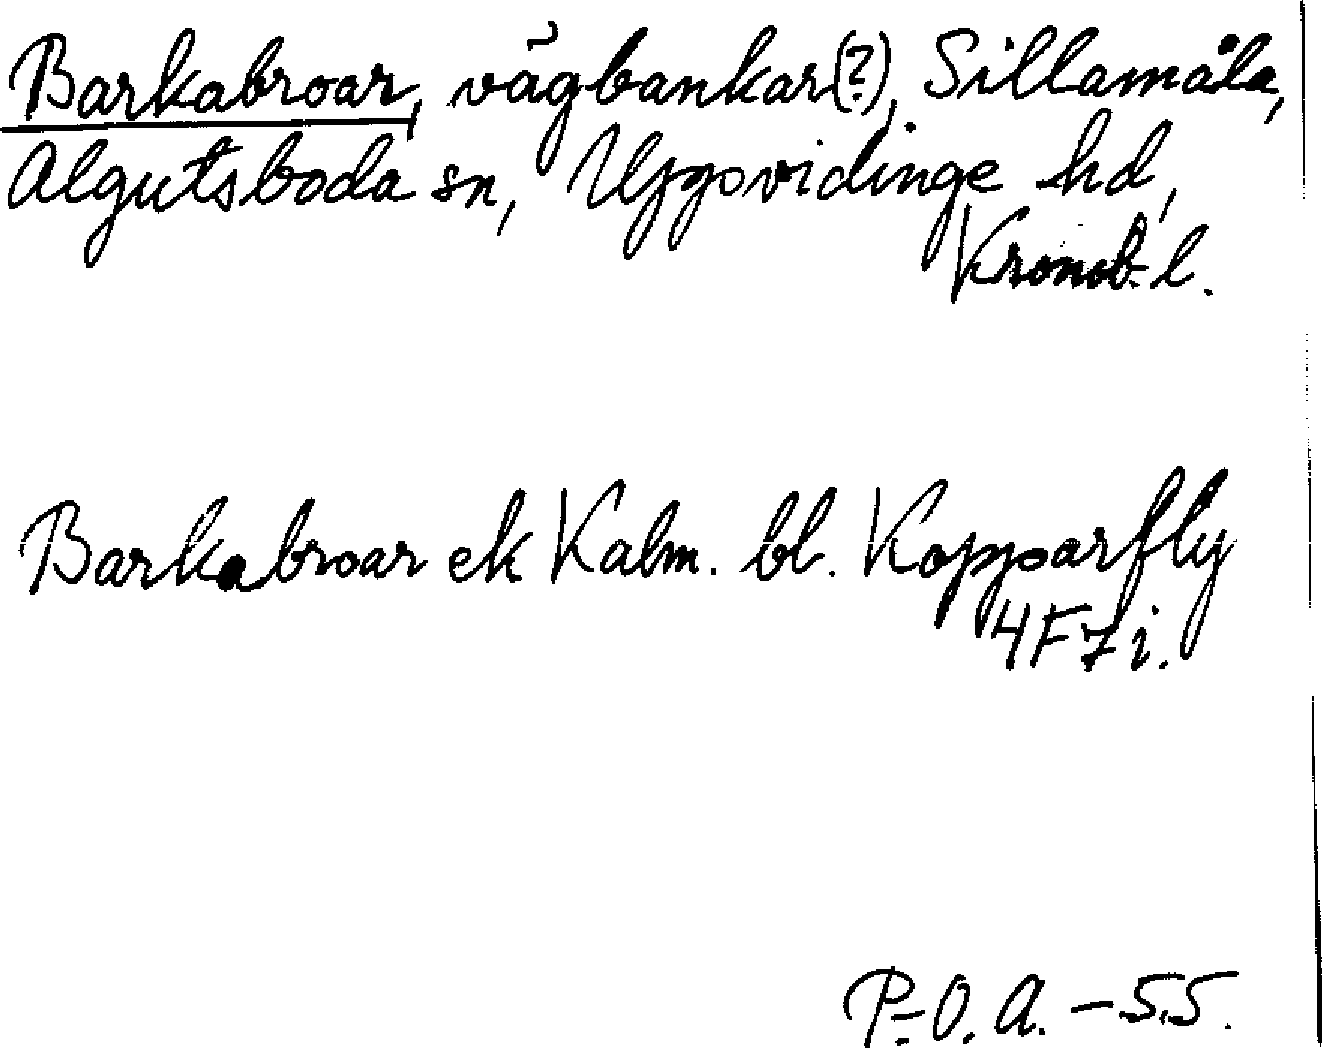 Barkabroar, vägbankar(?), Sillamåla,
Algutsboda sn, Uppvidinge hd,
Kronob. l.
Barkabroar ek Kalm. bl. Kopparfly
4F7i.
P-O. A. - 55.